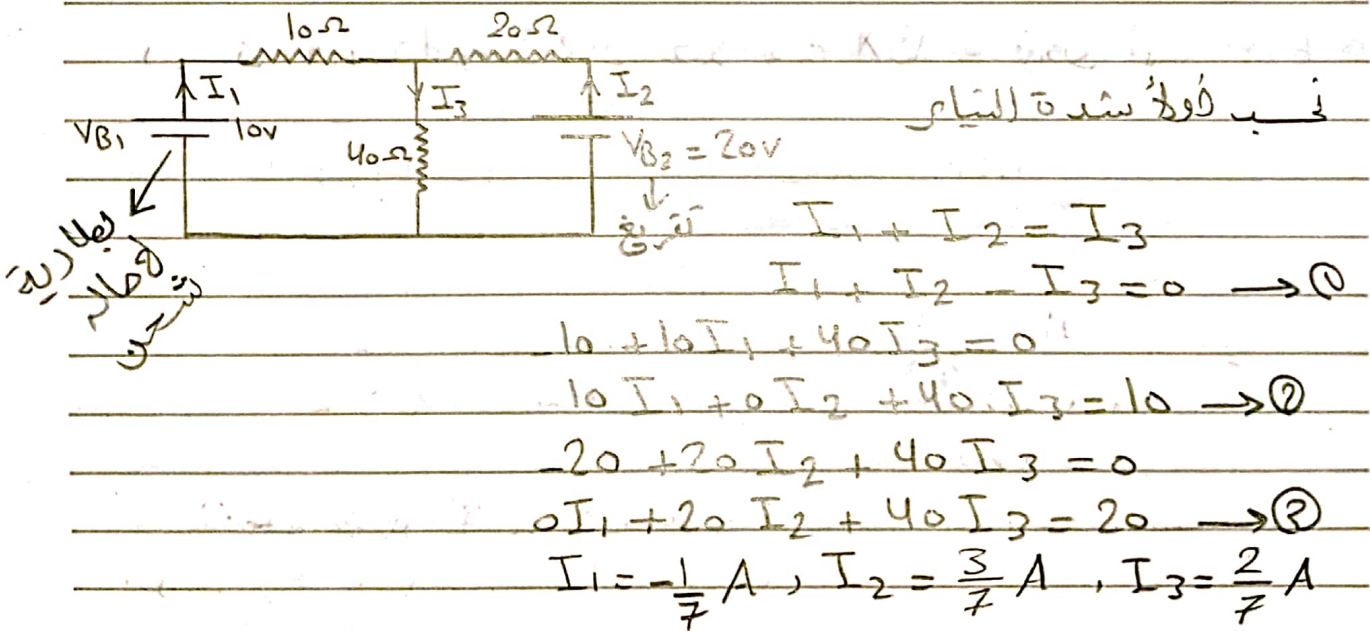 10Ω 20Ω
I₁ I₃ I₂
VB₁ 10V 40Ω VB₂ = 20V
نحسب أولاً شدة التيار
تفريغ
بطارية
في حالة
شحن
I₁ + I₂ = I₃
I₁ + I₂ - I₃ = 0 → ①
-10 + 10I₁ + 40I₃ = 0
10I₁ + 0I₂ + 40I₃ = 10 → ②
-20 + 20I₂ + 40I₃ = 0
0I₁ + 20I₂ + 40I₃ = 20 → ③
I₁ = -1/7 A, I₂ = 3/7 A, I₃ = 2/7 A